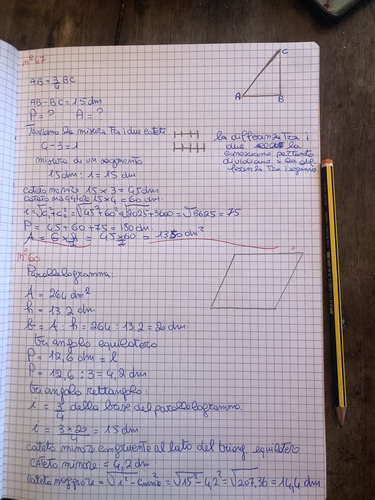 n° 47
AB = 3/4 BC
AB - BC = 15 dm
P = ? A = ?
Troviamo la misura fra i due cateti
4 - 3 = 1
la differenza tra i
due
misura di un segmento
15 dm : 1 = 15 dm
cateto minore 15 x 3 = 45 dm
cateto maggiore 15 x 4 = 60 dm
i = √c₁² + c₂² = √45² + 60² = √2025 + 3600 = √5625 = 75
P = 45 + 60 + 75 = 180 dm
A = b x h / 2 = 45 x 60 / 2 = 1350 dm²
C
A
B
n° 60
Parallelogramma:
A = 264 dm²
h = 13,2 dm
b = A : h = 264 : 13,2 = 20 dm
triangolo equilatero
P = 12,6 dm = l
P = 12,6 : 3 = 4,2 dm
triangolo rettangolo:
i = 3/4 della base del parallelogramma
i = 3 x 20 / 4 = 15 dm
cateto minore congruente al lato del triang. equilatero
cateto minore = 4,2 dm
cateto maggiore = √i² - c minore² = √15² - 4,2² = √207,36 = 14,4 dm